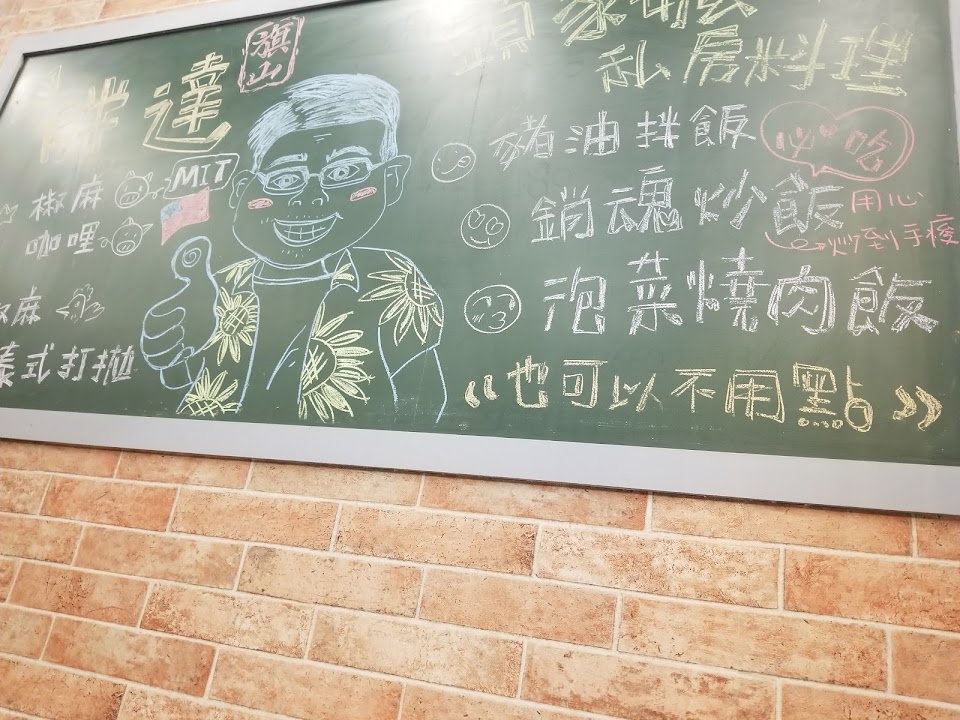 旗山
達
MIT
椒麻
咖哩
椒麻
泰式打拋
私房料理
豬油拌飯
必哈
銷魂炒飯
用心
炒到手痠
泡菜燒肉飯
“也可以不用點”